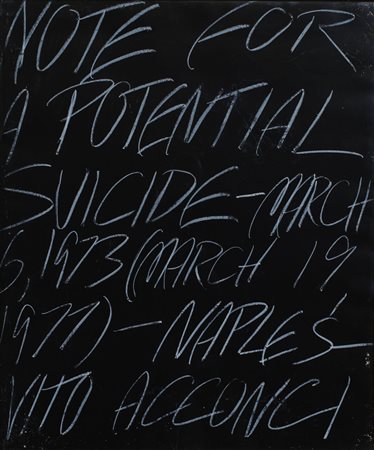 NOTE FOR
A POTENTIAL
SUICIDE – MARCH
6, 1973 (MARCH 19
1977) – NAPLES
VITO ACCONCI